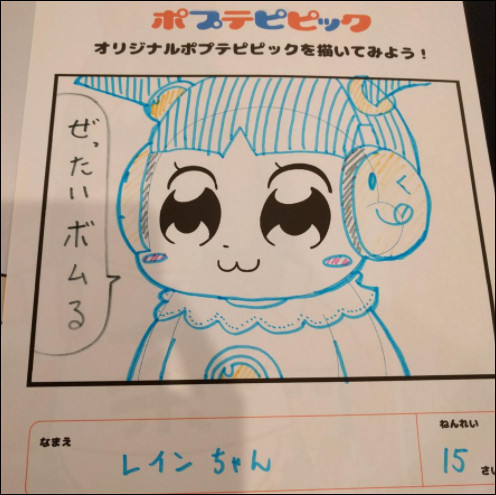 ポプテピピック
オリジナルポプテピピックを描いてみよう！
ぜったいボムる
なまえ
レインちゃん
ねんれい
15さい